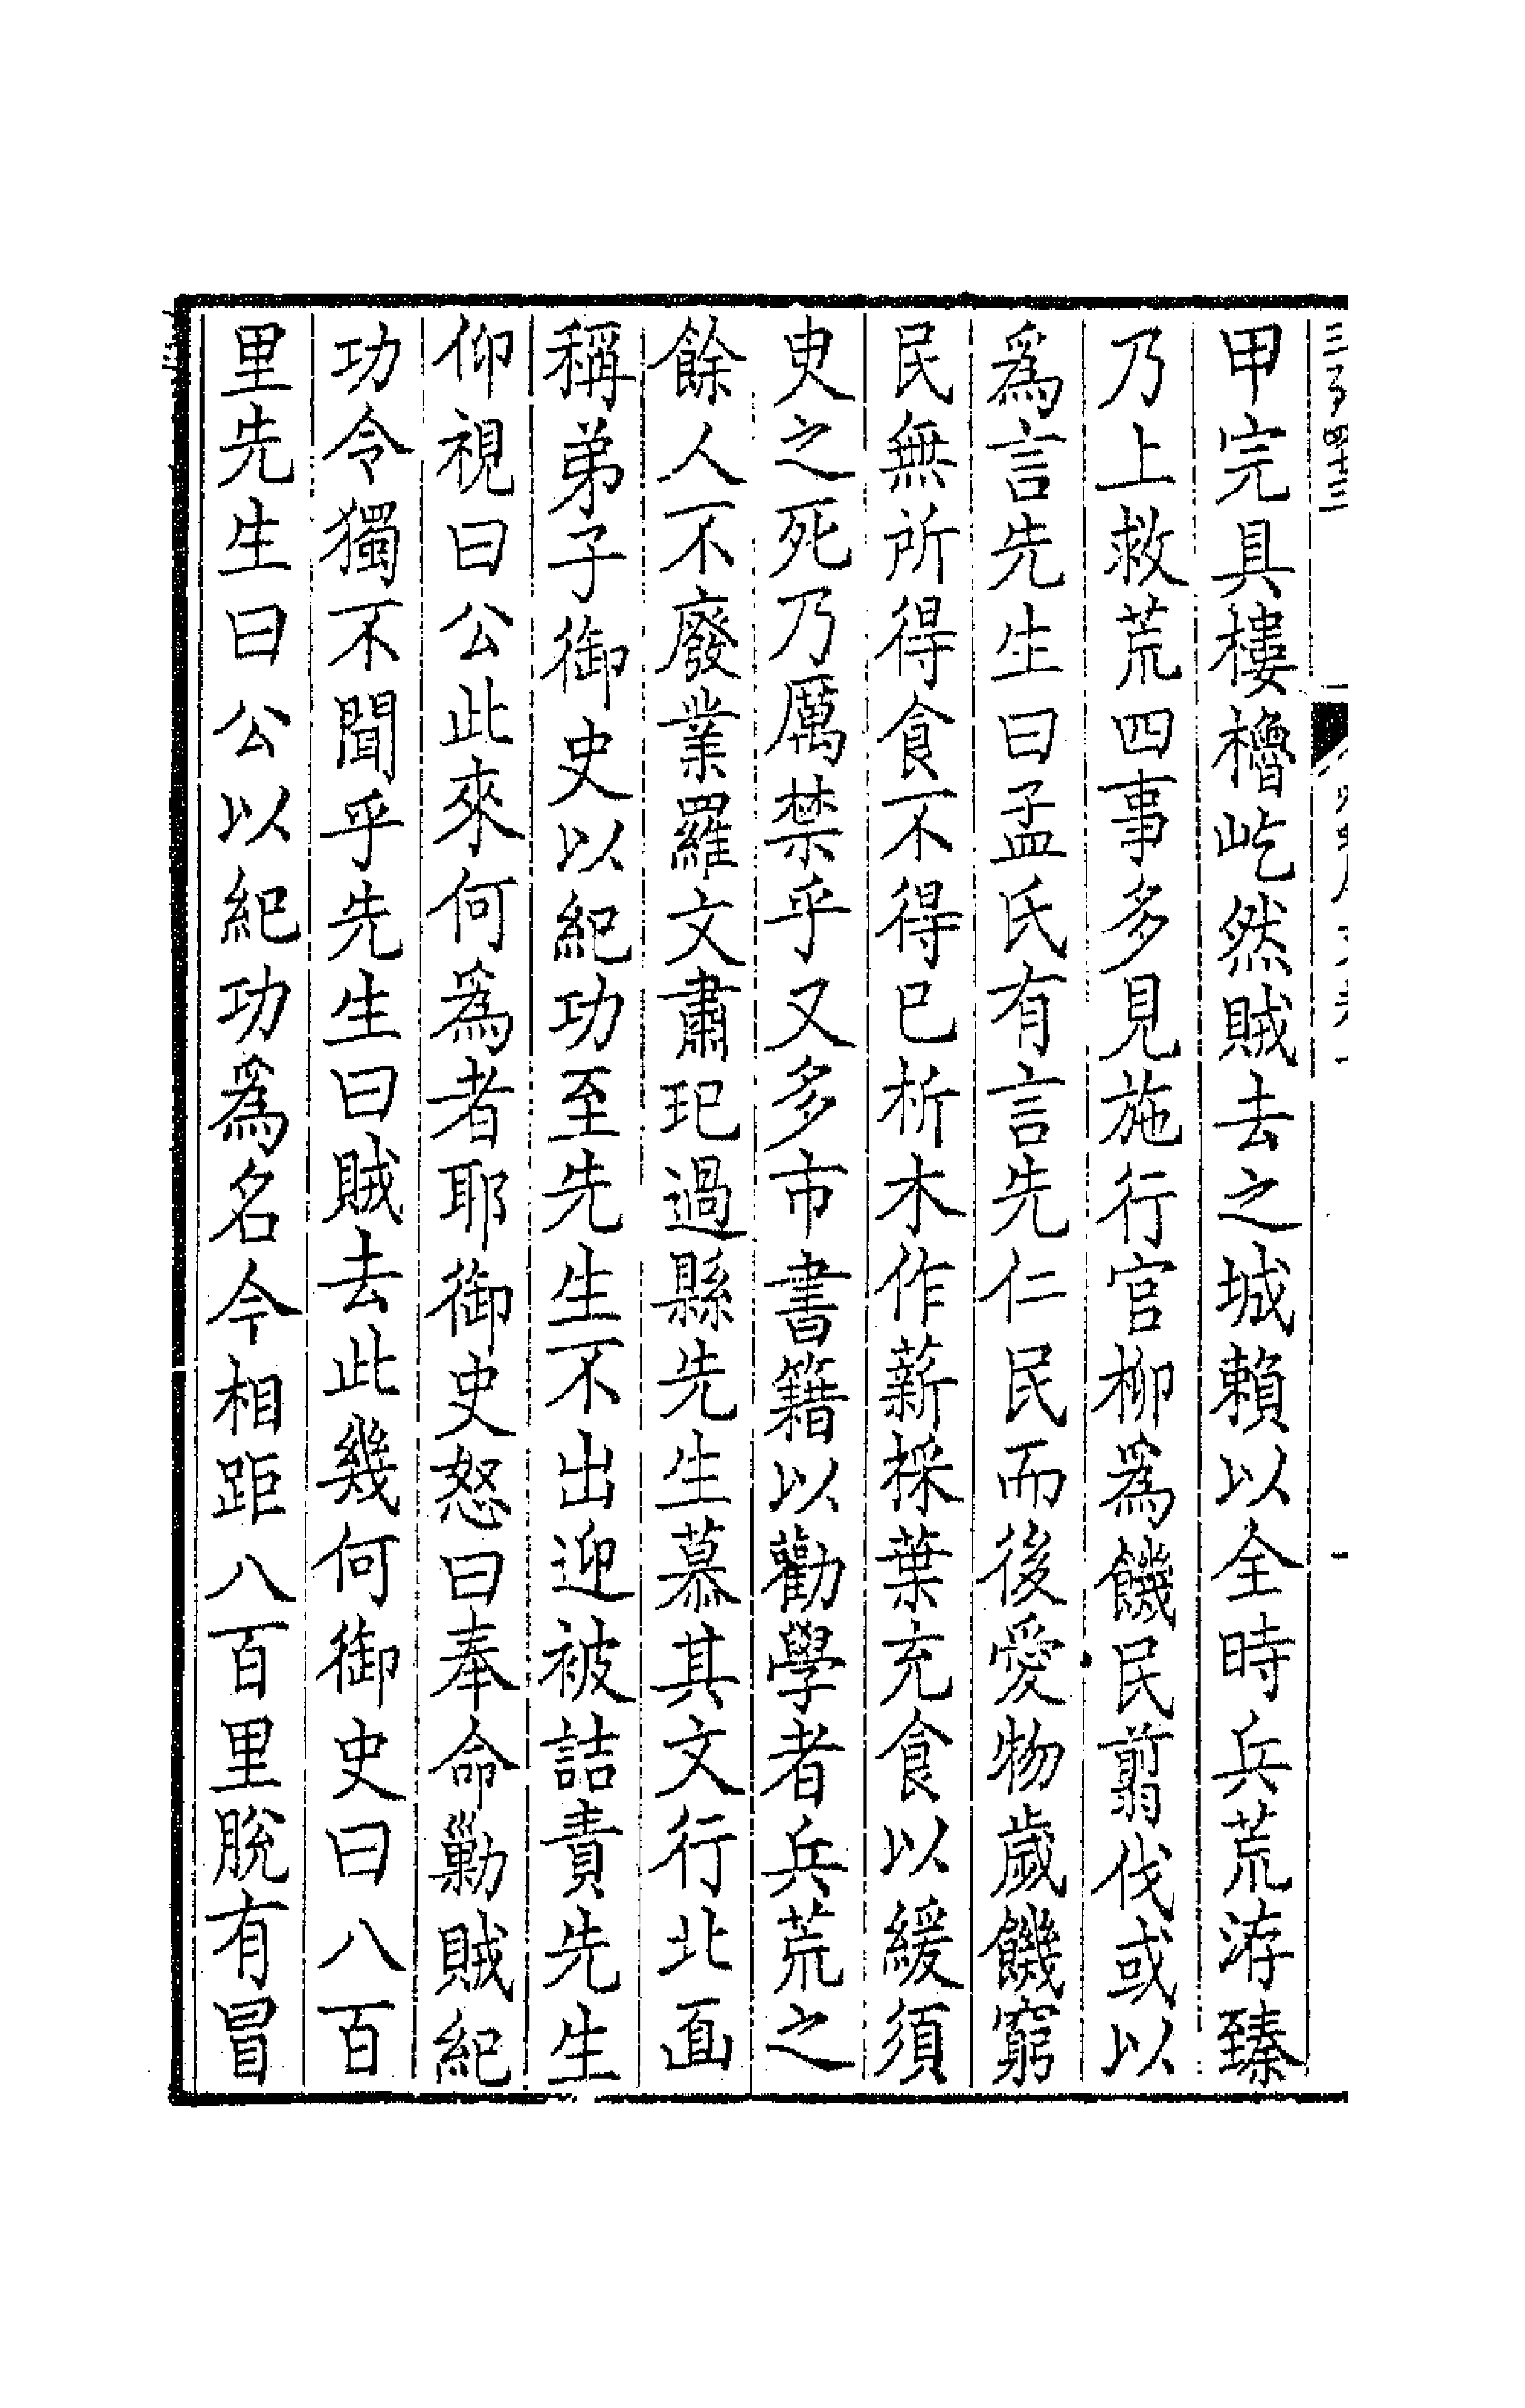 甲完具樓櫓屹然賊去之城賴以全時兵荒洊臻
乃上救荒四事多見施行官柳為饑民翦伐或以
為言先生曰孟氏有言先仁民而後愛物歲饑窮
民無所得食不得已析木作薪採葉充食以緩須
臾之死乃厲禁乎又多市書籍以勸學者兵荒之
餘人不廢業羅文肅玘過縣先生慕其文行北面
稱弟子御史以紀功至先生不出迎被詰責先生
仰視曰公此來何為者耶御史怒曰奉命勦賊紀
功令獨不聞乎先生曰賊去此幾何御史曰八百
里先生曰公以紀功為名今相距八百里脫有冒